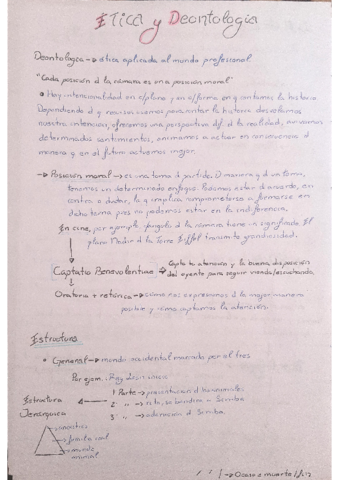 Ética y Deontología
Deontología → ética aplicada al mundo profesional
"Cada posición d la cámara es una posición moral"
• Hay intencionalidad en el plano y en la forma en q contamos la historia
Dependiendo d q recursos usemos para contar la historia desvelamos
nuestra intención, ofrecemos una perspectiva dif. d la realidad,
determinados sentimientos, animamos a actuar en consecuencia d
manera y en el futuro actuemos mejor.
→ Posición moral → es una toma d partido. D manera y d un tema,
tenemos un determinado enfoque. Podemos estar d acuerdo, en
contra o dudar, lo q implica comprometerse a formarse en
dicho tema pues no podemos estar en la indiferencia.
En cine, por ejemplo el ángulo d la cámara tiene un significado. El
plano Nadir d la Torre Eiffel transmite grandiosidad.
Captatio Benevolentiae → Capta tu atención y la buena disposición
del oyente para seguir viendo/escuchando.
Oratoria + retórica → cómo nos expresamos d la mejor manera
posible y cómo captamos la atención.
Estructura
• General → mundo occidental marcado por el tres
Por ejem. Rey León
1 Parte → presentación d los animales
Estructura
Jerárquica
2 " → Simba
3 " → Simba
→ Ocaso o muerte